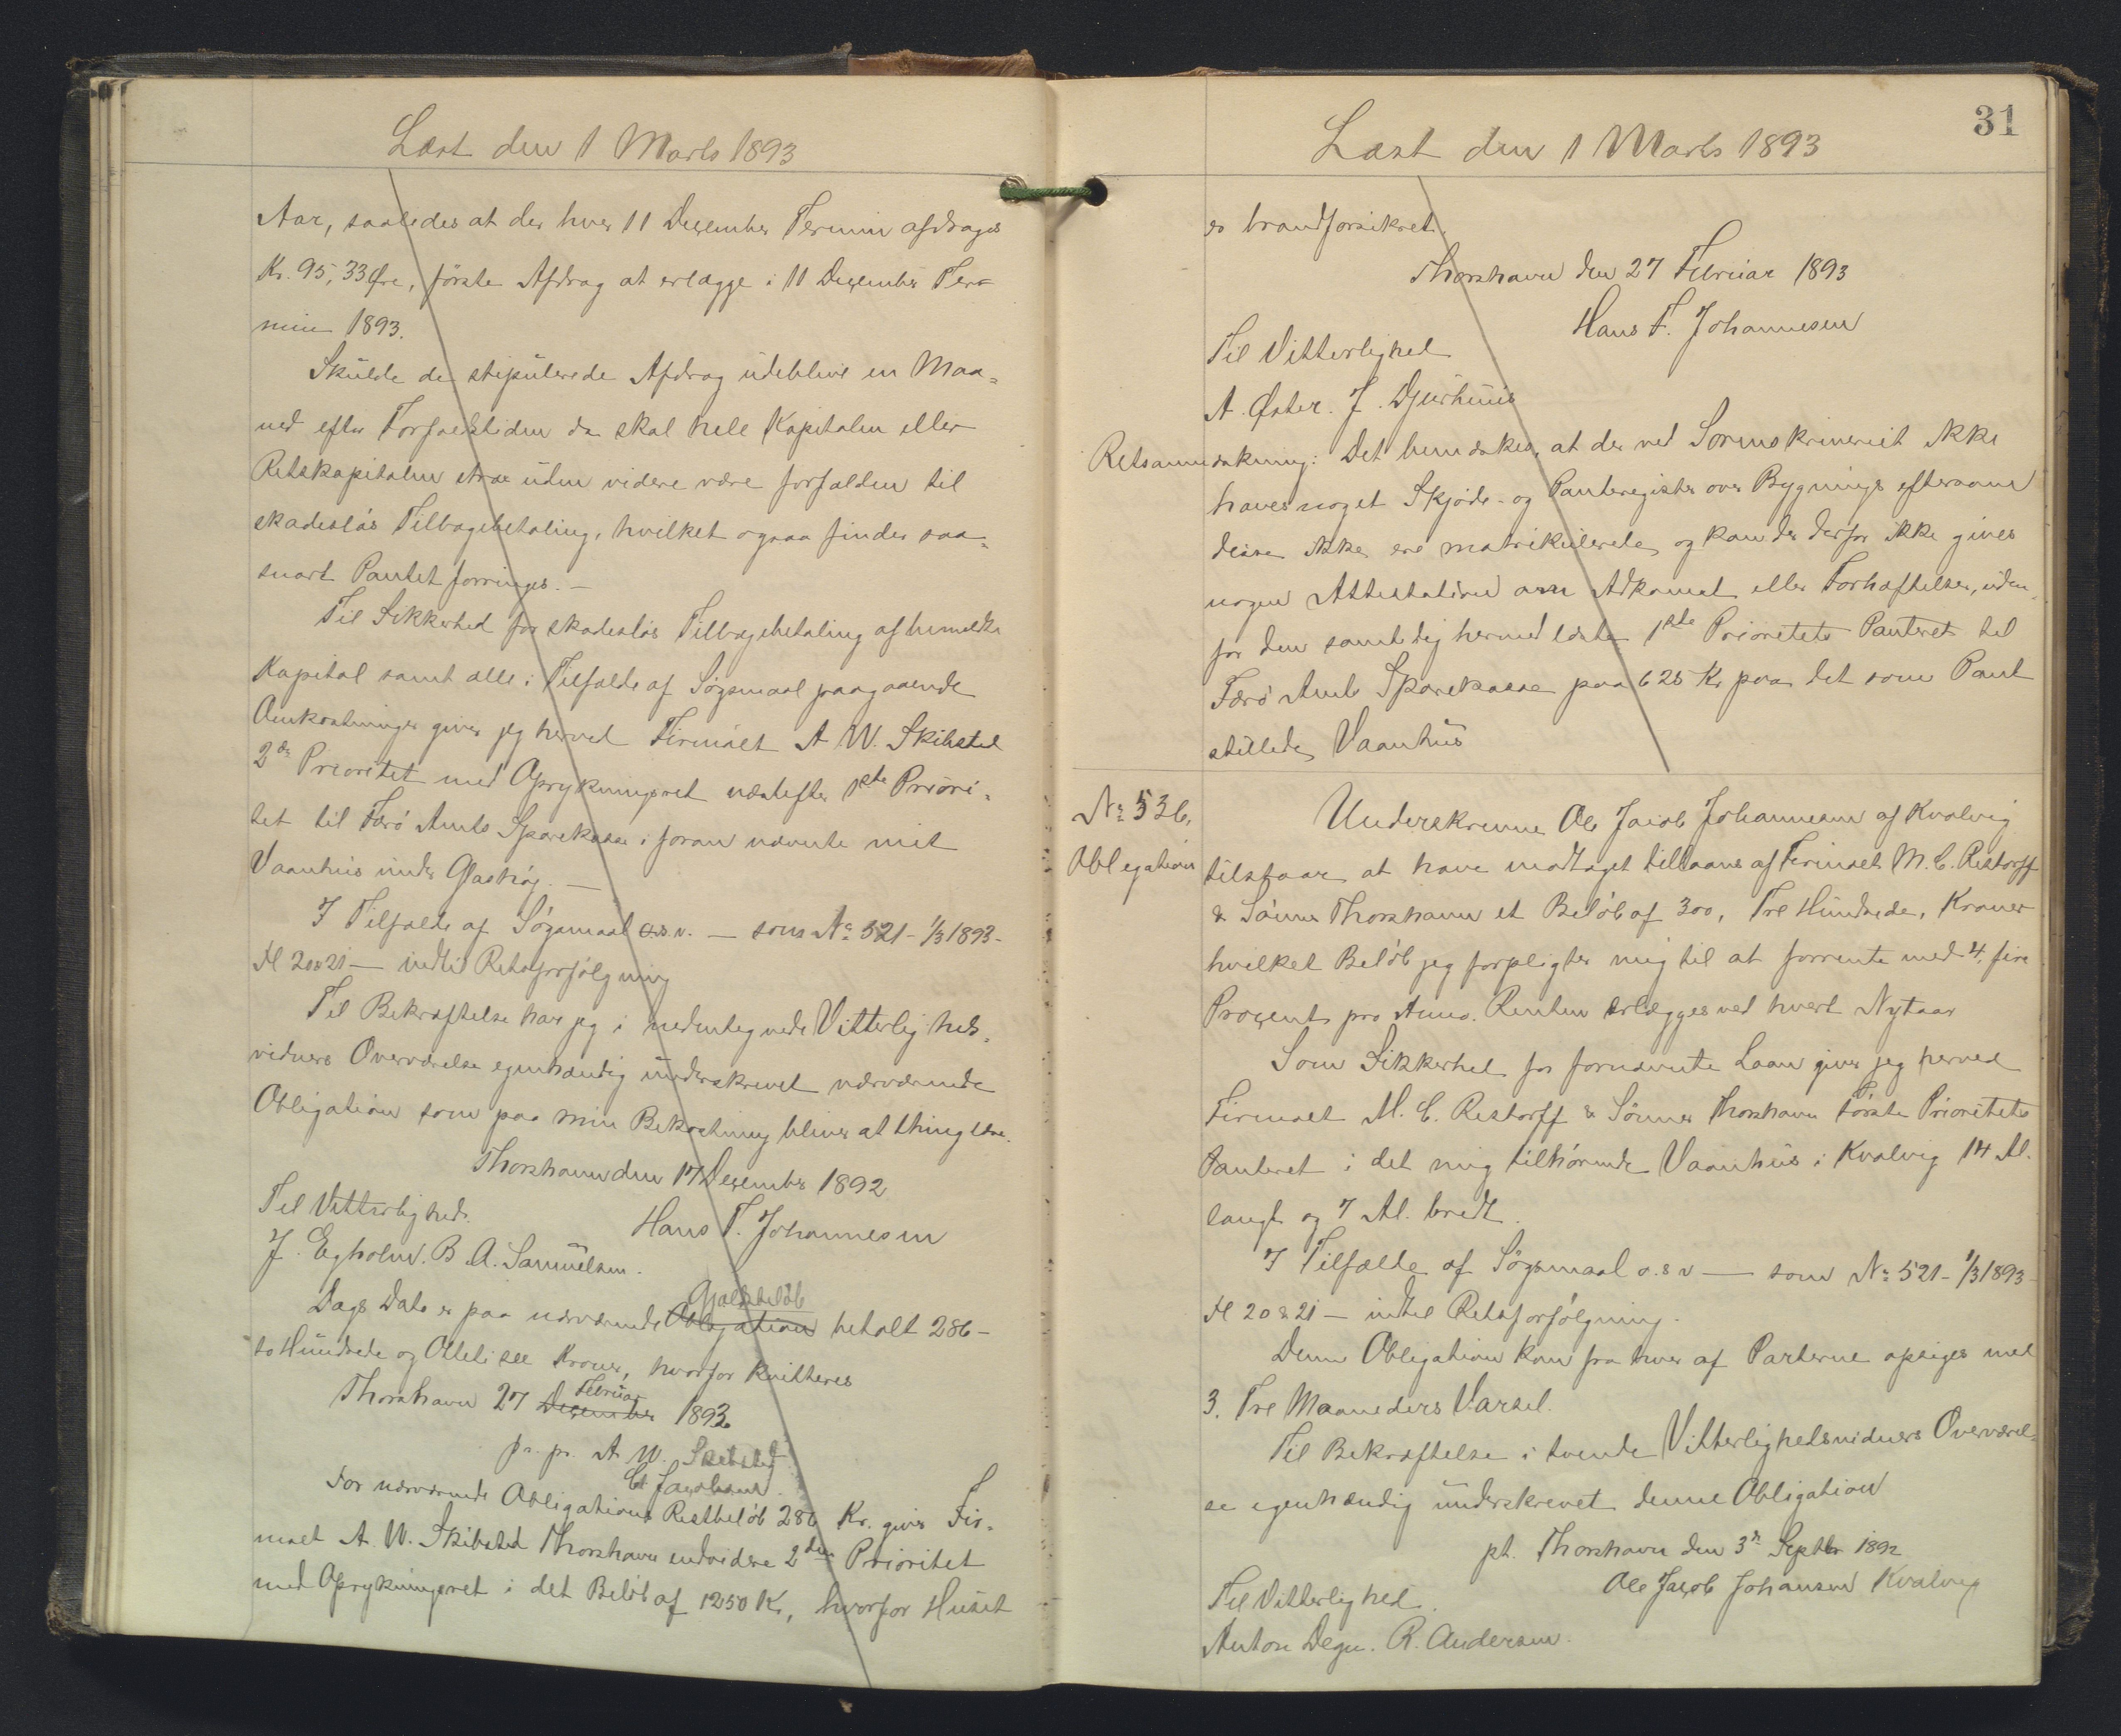 Læst den 1 Marts 1893
Aar, saaledes at der hver 11 December Termin afdrages
Kr. 95,33 Øre, første Afdrag at erlægge i 11 December Ter=
min 1893.
Skulde de stipulerede Afdrag udeblive en Maa=
ned efter Forfaldstiden da skal hele Kapitalen eller
Restkapitalen strax uden videre være forfalden til
skadesløs Tilbagebetaling, hvilket ogsaa finder saa=
snart Pantet forringes. —
Til Sikkerhed for skadesløs Tilbagebetaling af bemeldte
Kapital samt alle i Tilfælde af Søgsmaal paagaaende
Omkostninger giver jeg herved Firmaet A W. Skibsted
2den Prioritet med Oprykningsret næstefter 1ste Priori=
tet til Færø Amts Sparekasse i foran nævnte mit
Vaanhus under Glashøj. —
I Tilfælde af Søgsmaal o.s.v. — som No 521 - 1/3 1893 -
Pl 20 & 21 — indtil Retsforfølgning
Til Bekræftelse har jeg i nedentegnede Vitterligheds=
vidners Overværelse egenhændig underskrevet nærværende
Obligation som paa min Bekostning bliver at thinglæse.
Thorshavn den 17 December 1892
Til Vitterlighed.
Hans F. Johannesen
J. Egholm. B. A. Samuelsen.
Gjældsbeløb
Dags Dato er paa nærværende Obligation betalt 286 —
to Hundrede og Otteti sex Kroner, hvorfor kvitteres
Februar
Thorshavn 27 December 1893
pr. pr. A W. Skibsted
C. Jacobsen.
For nærværende Obligations Restbeløb 286 Kr. giver Fir=
maet A. W. Skibsted Thorshavn endvidere 2den Prioritet
med Oprykningsret i det Beløb af 1250 Kr, hvorfor Huset
31
Læst den 1 Marts 1893
er brandforsikret.
Thorshavn den 27 Februar 1893
Hans F. Johannesen
Til Vitterlighed
A. Øster. J. Djurhuus
Retsanmærkning: Det bemærkes, at der ved Sorenskriveriet ikke
haves noget Skjøde- og Panteregister over Bygninger eftersom
disse ikke ere matrikulerede og kan der derfor ikke gives
nogen Attestation om Adkomst eller Forhæftelser, uden=
for den samtidig hermed læste 1ste Prioritets Panteret til
Færø Amts Sparekasse paa 625 Kr paa det som Pant
stillede Vaanhus
No 536.
Obligation
Underskrevne Ole Jacob Johannesen af Kvalvig
tilstaar at have modtaget tillaans af Firmaet M. C. Restorff
& Sønner Thorshavn et Beløb af 300, Tre Hundrede, Kroner
hvilket Beløb jeg forpligter mig til at forrente med 4, fire
Procent pro Anno. Renten erlægges ved hvert Nytaar
Som Sikkerhed for fornævnte Laan giver jeg herved
Firmaet M. C. Restorff & Sønner Thorshavn første Prioritets
Panteret i det mig tilhørende Vaanhus i Kvalvig 14 Al.
langt og 7 Al. bredt.
I Tilfælde af Søgsmaal o.s v — som No 521 - 1/3 1893 -
Pl 20 & 21 — indtil Retsforfølgning.
Denne Obligation kan fra hver af Parterne opsiges med
3. Tre Maaneders Varsel.
Til Bekræftelse i tvende Vitterlighedsvidners Overværel=
se egenhændig underskrevet denne Obligation
pt. Thorshavn den 3de Septbr 1892
Ole Jacob Johansen Kvalvig
Til Vitterlighed.
Anton Degn. R. Andersen.